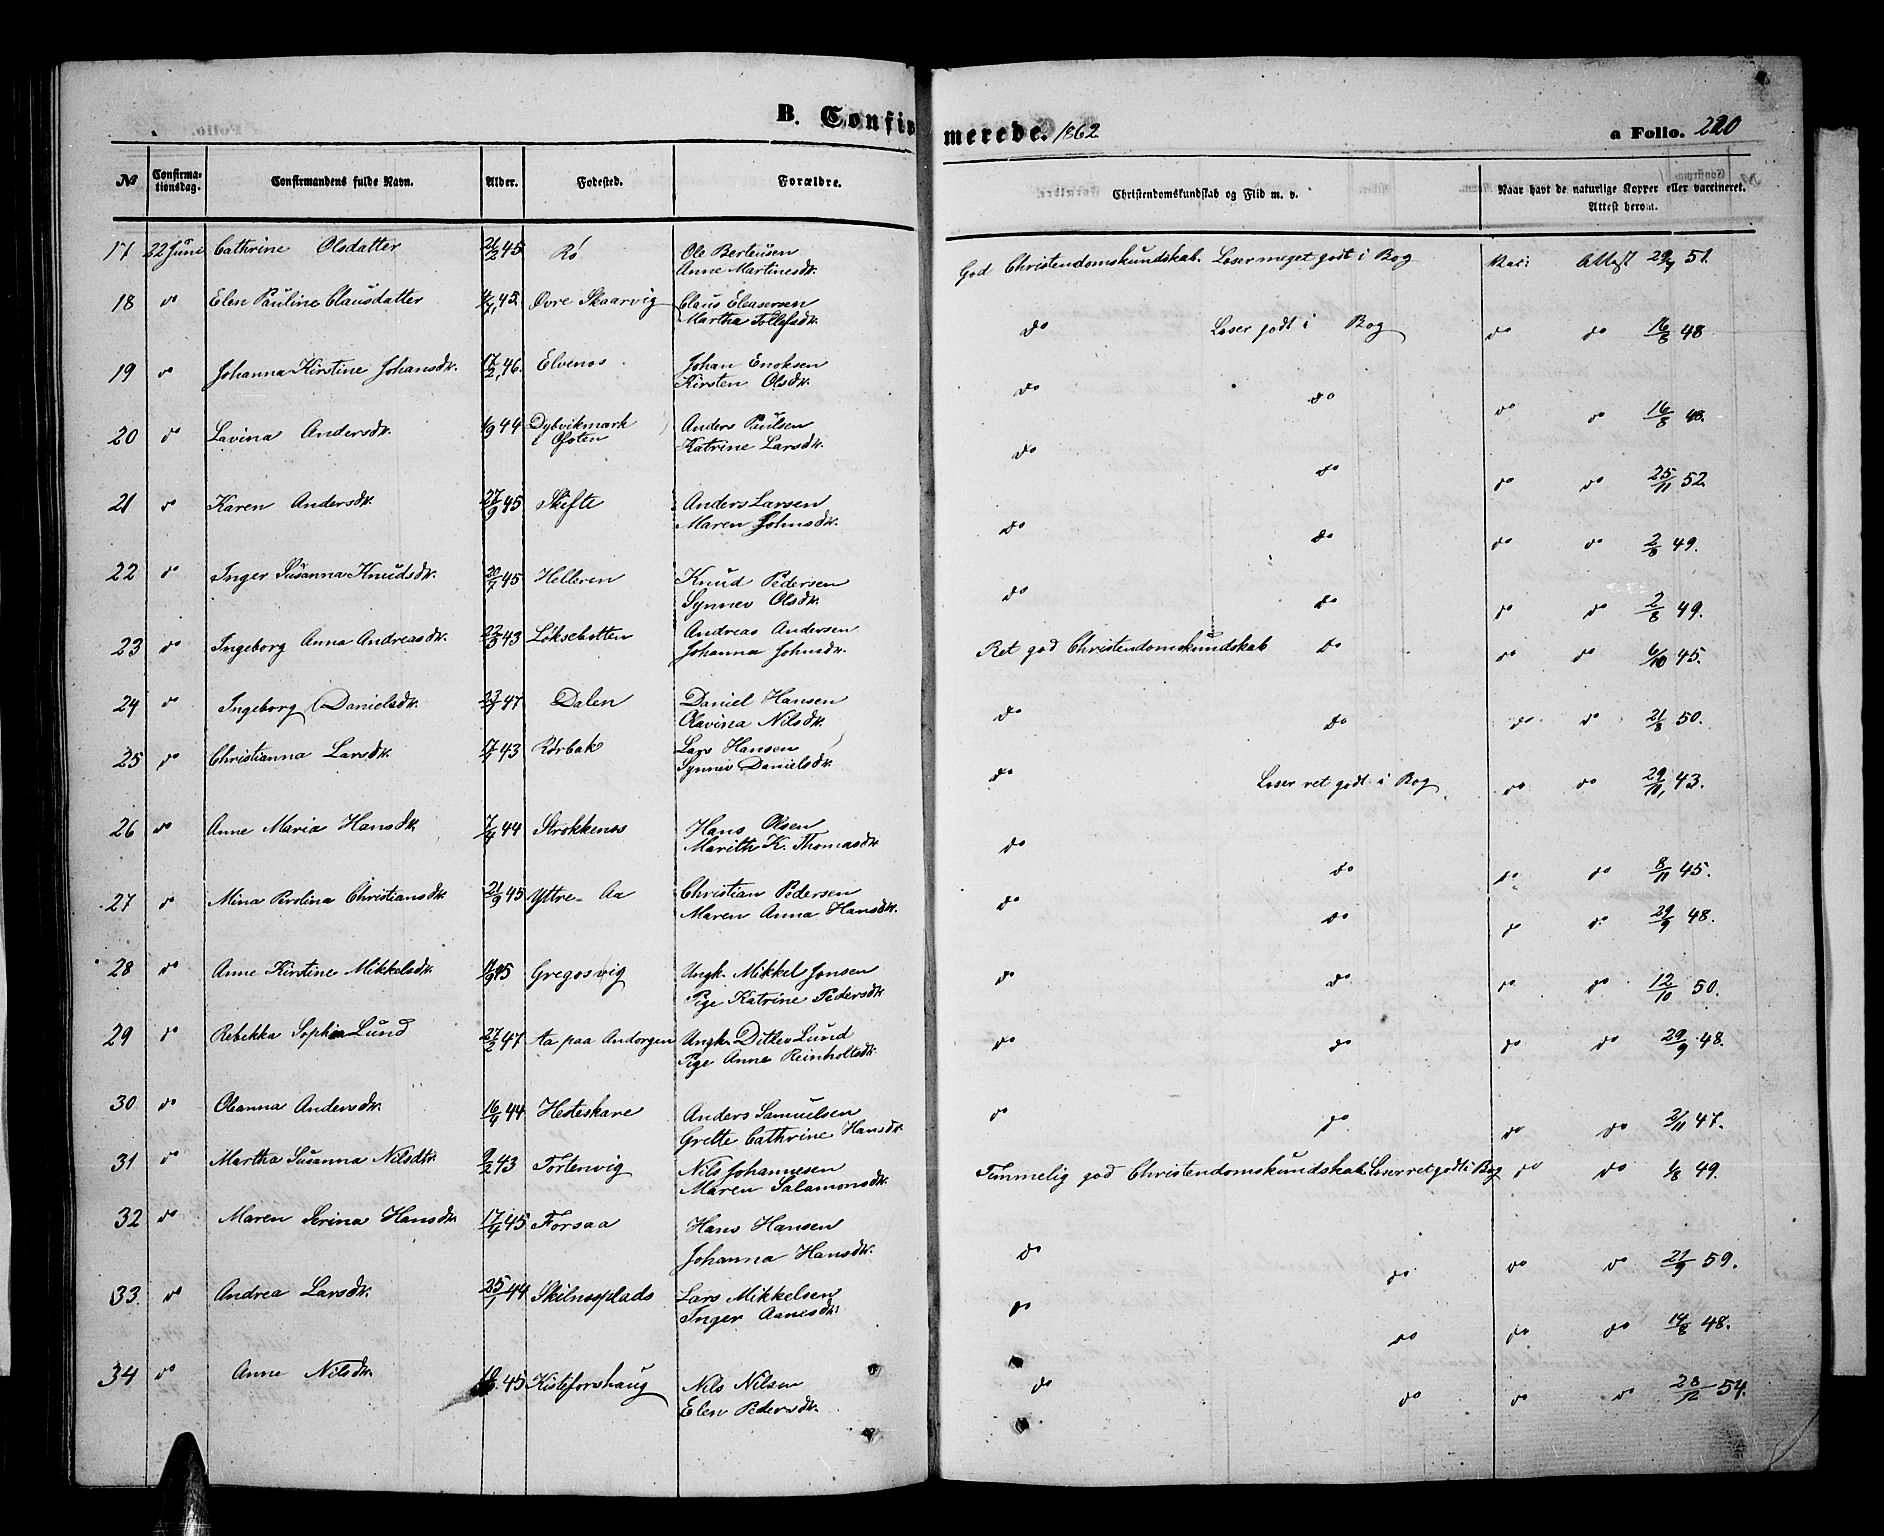 B. Confirmerede. 1862 a Folio. 220
No Confirmationsdag. Confirmandens fulde Navn. Alder. Fødested. Forældre. Christendomskundskab og Flid m. v. Naar havt de naturlige Kopper eller vaccineret. Attest herom.
17 22 Juni Cathrine Olsdatter 45 Rø Ole Berteusen God Christendomskundskab. Læser meget godt i Bog Vac: Attest 51.
Anne Martinesdtr.
18 do Elen Pauline Clausdatter 45. Øvre Skaarvig Claus Eleasersen do Læser godt i Bog do do 16/8 48
Martha Tollefsdtr.
19 do Johanna Kirstine Johansdtr. 17/2 46. Elvenes Johan Enoksen do do do do 16/8 48.
Kirsten Olsdtr.
20 do Lavina Andersdtr. 44 Dybvikmark Anders Paulsen do do do do 25/11 52
i Ofoten Katrine Larsdtr.
21 do Karen Andersdtr. 27/9 45 Skifte Anders Larsen do do do do 2/8 49.
Maren Johnsdtr.
22 do Inger Susanna Knudsdtr. 20/7 45 Helleren Knud Pedersen do do do do 2/8 49.
Synnev Olsdtr.
23 do Ingeborg Anna Andreasdtr. 43 Løksebotten Andreas Andersen Ret god Christendomskundskab do do do 6/10 45.
Johanna Johnsdtr.
24 do Ingeborg Danielsdtr. 47 Dalen Daniel Hansen do do do do 21/8 50.
Olavina Nilsdtr.
25 do Christianna Larsdtr. 43 Rørbak Lars Hansen do Læser ret godt i Bog do do 43.
Synnev Danielsdtr.
26 do Anne Maria Hansdtr. 44 Strokkenes Hans Olsen do do do do 8/11 45.
Marith K. Thomasdtr
27 do Mina Perolina Christiansdtr. 21/9 45 Yttre-Aa Christian Pedersen do do do do 29/9 48.
Maren Anna Hansdtr.
28 do Anne Kirstine Mikkelsdtr. 45 Gregosvig Ungk. Mikkel Jonsen do do do do 12/10 50.
Pige Katrine Pedersdtr
29 do Rebekka Sophia Lund 27/2 47 Aa paa Andorgen Ungk. Ditlev Lund do do do do 29/9 48.
Pige Anne Reinholtsdtr.
30 do Oleanna Andersdtr. 44 Hesteskare Anders Samuelsen do do do do 2/11 47.
Grette Cathrine Hansdtr.
31 do Martha Susanna Nilsdtr. 9/2 43 Fortenvig Nils Johannesen Temmelig god Christendomskundskab. Læser ret godt i Bog do do 49.
Maren Salamonsdtr.
32 do Maren Serina Hansdtr. 45 Forsaa Hans Hansen do do do do 21/9 59.
Johanna Hansdtr.
33. do Andrea Larsdtr. 44 Skilnesplads Lars Mikkelsen do do do do 14/8 48.
Inger Aanesdtr.
34 do Anne Nilsdtr. 45 Kisteforshaug Nils Nilsen do do do do 28/12 54.
Elen Pedersdtr.